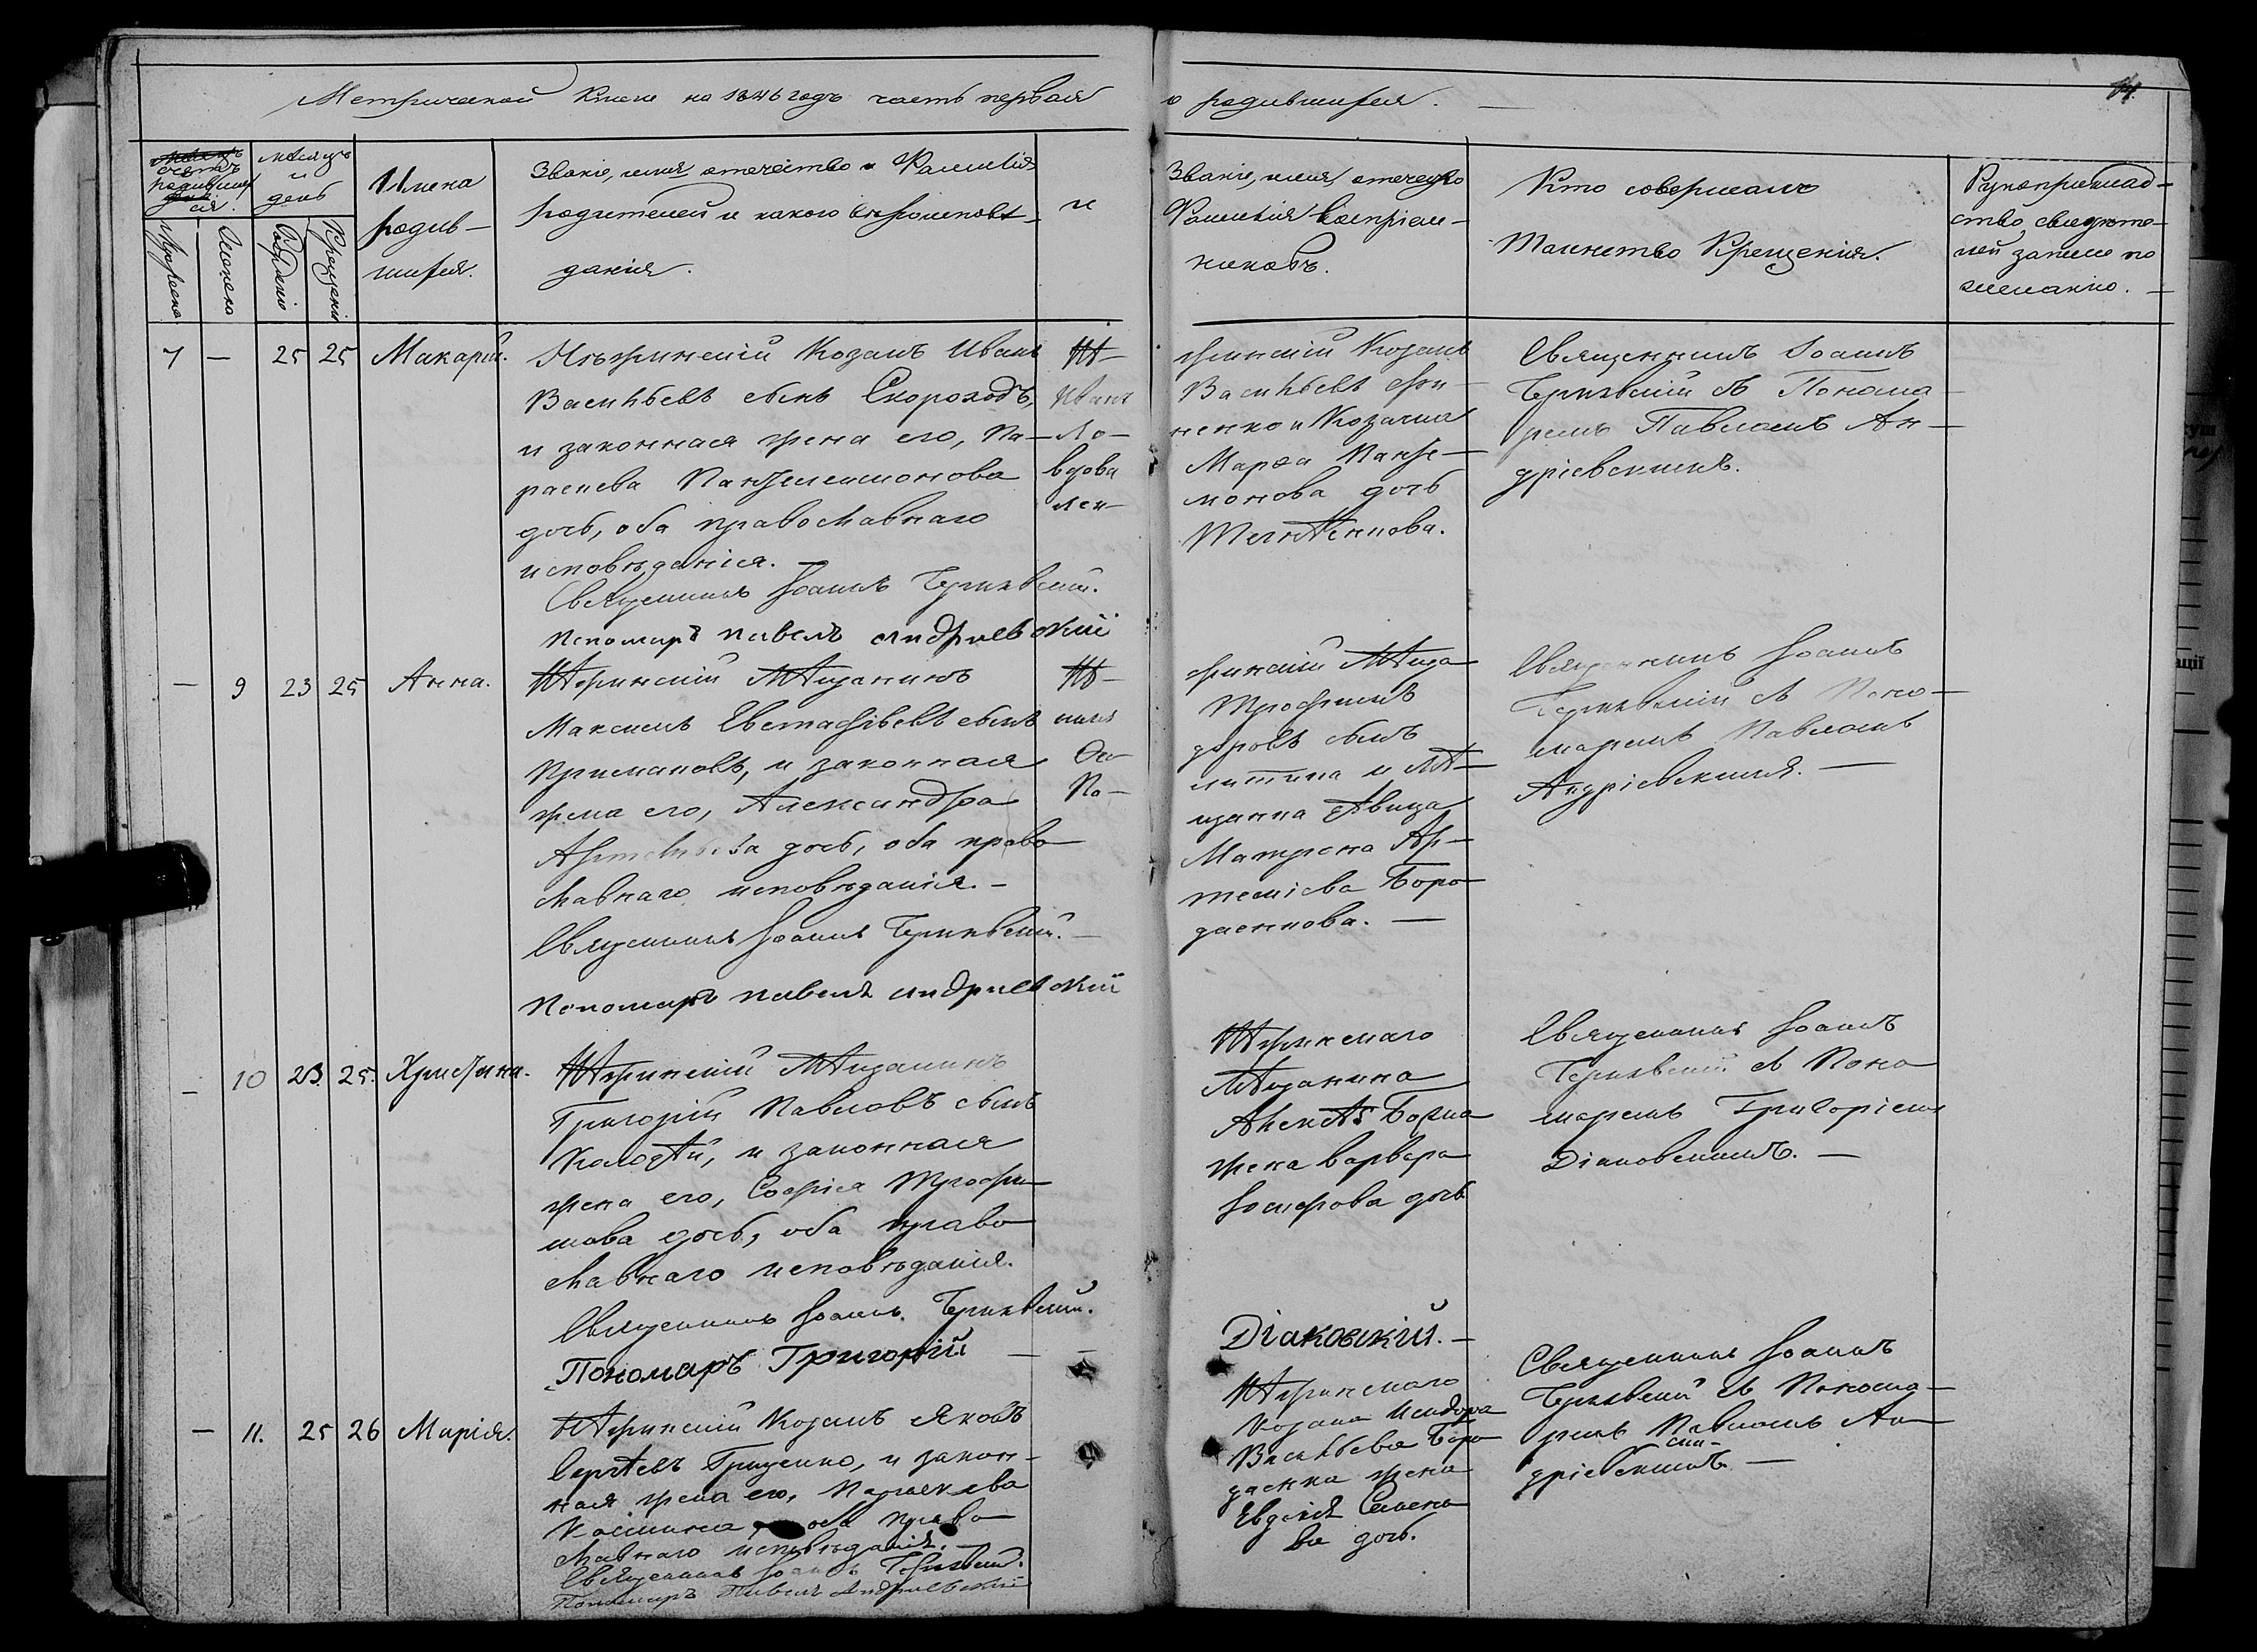 Метрической Книги на 1846 годъ часть первая о родившихся. —
14.
счетъ родившихся.
мѣсяцъ и день
Имена
родив-
шихся.
Званіе, имя, отечество и Фамилія
родителей и какого вѣроисповѣ-
данія.
и
Званіе, имя, отечество
Фамилія воспріем-
никовъ.
Кто совершалъ
Таинство Крещенія.
Рукоприклад-
ство свидѣте-
лей записи по
желанію.
Мужеска
Женска
Рожденіе
Крещеніе
7 — 25 25 Макарій.
Нѣжинскій Козакъ Иванъ
Васильевъ сынъ Скороходъ,
и законная жена его, Па-
раскева Пантелеимонова
дочь, оба православнаго
исповѣданія.
Священникъ Іоаннъ
Пономарь Павелъ Андриевский
Нѣ-
Иванъ
вдова
жинскій Козакъ
Васильевъ
и Козачка
Марѳа
монова дочь
Священникъ Іоаннъ
съ Понома-
ремъ Павломъ Ан-
дріевскимъ.
— 9 23 25 Анна.
Нѣжинскій Мѣщанинъ
Максимъ Евстафіевъ сынъ
и законная
жена его, Александра
дочь, оба право-
славнаго исповѣданія. —
Священникъ Іоаннъ
Пономарь Павелъ Андриевский
Нѣ-
нинъ
Ѳео-
По-
жинскій Мѣща-
Трофимъ
доровъ сынъ
и Мѣ-
щанка дѣвица
Матрона Ар-
теміева Боро-
даенкова. —
Священникъ Іоаннъ
съ Поно-
маремъ Павломъ
Андріевскимъ. —
— 10 23. 25. Христина.
Нѣжинскій Мѣщанинъ
Григорій Павловъ сынъ
и законная
жена его, Софія Трофи-
мова дочь, оба право-
славнаго исповѣданія.
Священникъ Іоаннъ
Пономаръ Григорій — —
Нѣжинскаго
Мѣщанина
жена Варвара
дочь
Діаковскій. —
Священникъ Іоаннъ
съ Поно-
маремъ Григоріемъ
Діаковскимъ. —
— 11. 25 26 Марія.
Нѣжинскій Козакъ Яковъ
Сергѣевъ Гриценко, и закон-
ная жена его, Параскева
оба право-
славнаго исповѣданія. —
Священникъ Іоаннъ
Пономарь Павелъ Андриевский
Нѣжинскаго
Козака Исидора
Васильева Боро-
даенка жена
Семено-
ва дочь.
Священникъ Іоаннъ
съ Понома-
ремъ Павломъ Ан-
дріевскимъ. —